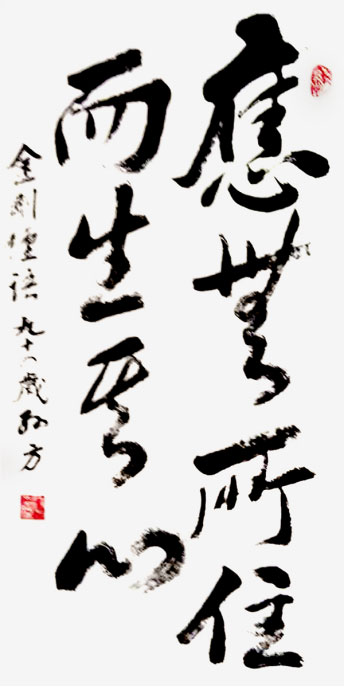 應無所住
而生其心
金剛經語 九十八歲孫方